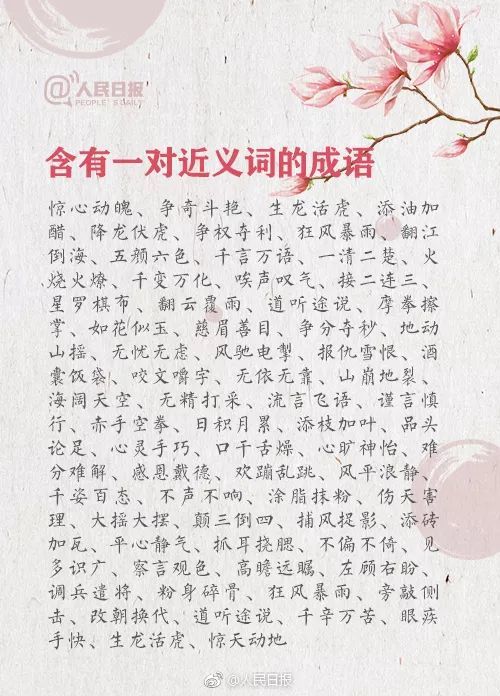 @人民日报
PEOPLE'S DAILY
含有一对近义词的成语
惊心动魄、争奇斗艳、生龙活虎、添油加
醋、降龙伏虎、争权夺利、狂风暴雨、翻江
倒海、五颜六色、千言万语、一清二楚、火
烧火燎、千变万化、唉声叹气、接二连三、
星罗棋布、翻云覆雨、道听途说、摩拳擦
掌、如花似玉、慈眉善目、争分夺秒、地动
山摇、无忧无虑、风驰电掣、报仇雪恨、酒
囊饭袋、咬文嚼字、无依无靠、山崩地裂、
海阔天空、无精打采、流言飞语、谨言慎
行、赤手空拳、日积月累、添枝加叶、品头
论足、心灵手巧、口干舌燥、心旷神怡、难
分难解、感恩戴德、欢蹦乱跳、风平浪静、
千姿百态、不声不响、涂脂抹粉、伤天害
理、大摇大摆、颠三倒四、捕风捉影、添砖
加瓦、平心静气、抓耳挠腮、不偏不倚、见
多识广、察言观色、高瞻远瞩、左顾右盼、
调兵遣将、粉身碎骨、狂风暴雨、旁敲侧
击、改朝换代、道听途说、千辛万苦、眼疾
手快、生龙活虎、惊天动地
@人民日报